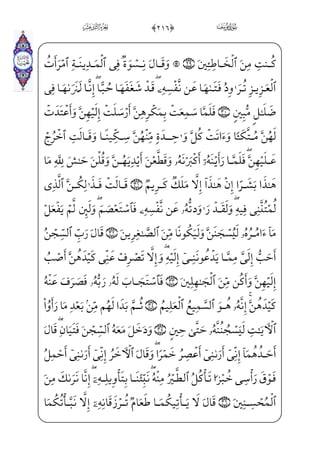 ﴿٢١٦﴾
كُنتِ مِنَ ٱلْخَاطِـِٔينَ ۞ وَقَالَ نِسْوَةٌ فِى ٱلْمَدِينَةِ ٱمْرَأَتُ
ٱلْعَزِيزِ تُرَٰوِدُ فَتَىٰهَا عَن نَّفْسِهِۦ ۖ قَدْ شَغَفَهَا حُبًّا ۖ إِنَّا لَنَرَىٰهَا فِى
ضَلَٰلٍ مُّبِينٍ ٣٠ فَلَمَّا سَمِعَتْ بِمَكْرِهِنَّ أَرْسَلَتْ إِلَيْهِنَّ وَأَعْتَدَتْ
لَهُنَّ مُتَّكَـًٔا وَءَاتَتْ كُلَّ وَٰحِدَةٍ مِّنْهُنَّ سِكِّينًا وَقَالَتِ ٱخْرُجْ
عَلَيْهِنَّ ۖ فَلَمَّا رَأَيْنَهُۥٓ أَكْبَرْنَهُۥ وَقَطَّعْنَ أَيْدِيَهُنَّ وَقُلْنَ حَٰشَ لِلَّهِ مَا
هَٰذَا بَشَرًا إِنْ هَٰذَآ إِلَّا مَلَكٌ كَرِيمٌ ٣١ قَالَتْ فَذَٰلِكُنَّ ٱلَّذِى
لُمْتُنَّنِى فِيهِ ۖ وَلَقَدْ رَٰوَدتُّهُۥ عَن نَّفْسِهِۦ فَٱسْتَعْصَمَ ۖ وَلَئِن لَّمْ يَفْعَلْ
مَآ ءَامُرُهُۥ لَيُسْجَنَنَّ وَلَيَكُونًا مِّنَ ٱلصَّٰغِرِينَ ٣٢ قَالَ رَبِّ ٱلسِّجْنُ
أَحَبُّ إِلَىَّ مِمَّا يَدْعُونَنِىٓ إِلَيْهِ ۖ وَإِلَّا تَصْرِفْ عَنِّى كَيْدَهُنَّ أَصْبُ
إِلَيْهِنَّ وَأَكُن مِّنَ ٱلْجَٰهِلِينَ ٣٣ فَٱسْتَجَابَ لَهُۥ رَبُّهُۥ فَصَرَفَ عَنْهُ
كَيْدَهُنَّ ۚ إِنَّهُۥ هُوَ ٱلسَّمِيعُ ٱلْعَلِيمُ ٣٤ ثُمَّ بَدَا لَهُم مِّنۢ بَعْدِ مَا رَأَوُا۟
ٱلْـَٔايَٰتِ لَيَسْجُنُنَّهُۥ حَتَّىٰ حِينٍ ٣٥ وَدَخَلَ مَعَهُ ٱلسِّجْنَ فَتَيَانِ ۖ قَالَ
أَحَدُهُمَآ إِنِّىٓ أَرَىٰنِىٓ أَعْصِرُ خَمْرًا ۖ وَقَالَ ٱلْـَٔاخَرُ إِنِّىٓ أَرَىٰنِىٓ أَحْمِلُ
فَوْقَ رَأْسِى خُبْزًا تَأْكُلُ ٱلطَّيْرُ مِنْهُ ۖ نَبِّئْنَا بِتَأْوِيلِهِۦٓ ۖ إِنَّا نَرَىٰكَ مِنَ
ٱلْمُحْسِنِينَ ٣٦ قَالَ لَا يَأْتِيكُمَا طَعَامٌ تُرْزَقَانِهِۦٓ إِلَّا نَبَّأْتُكُمَا